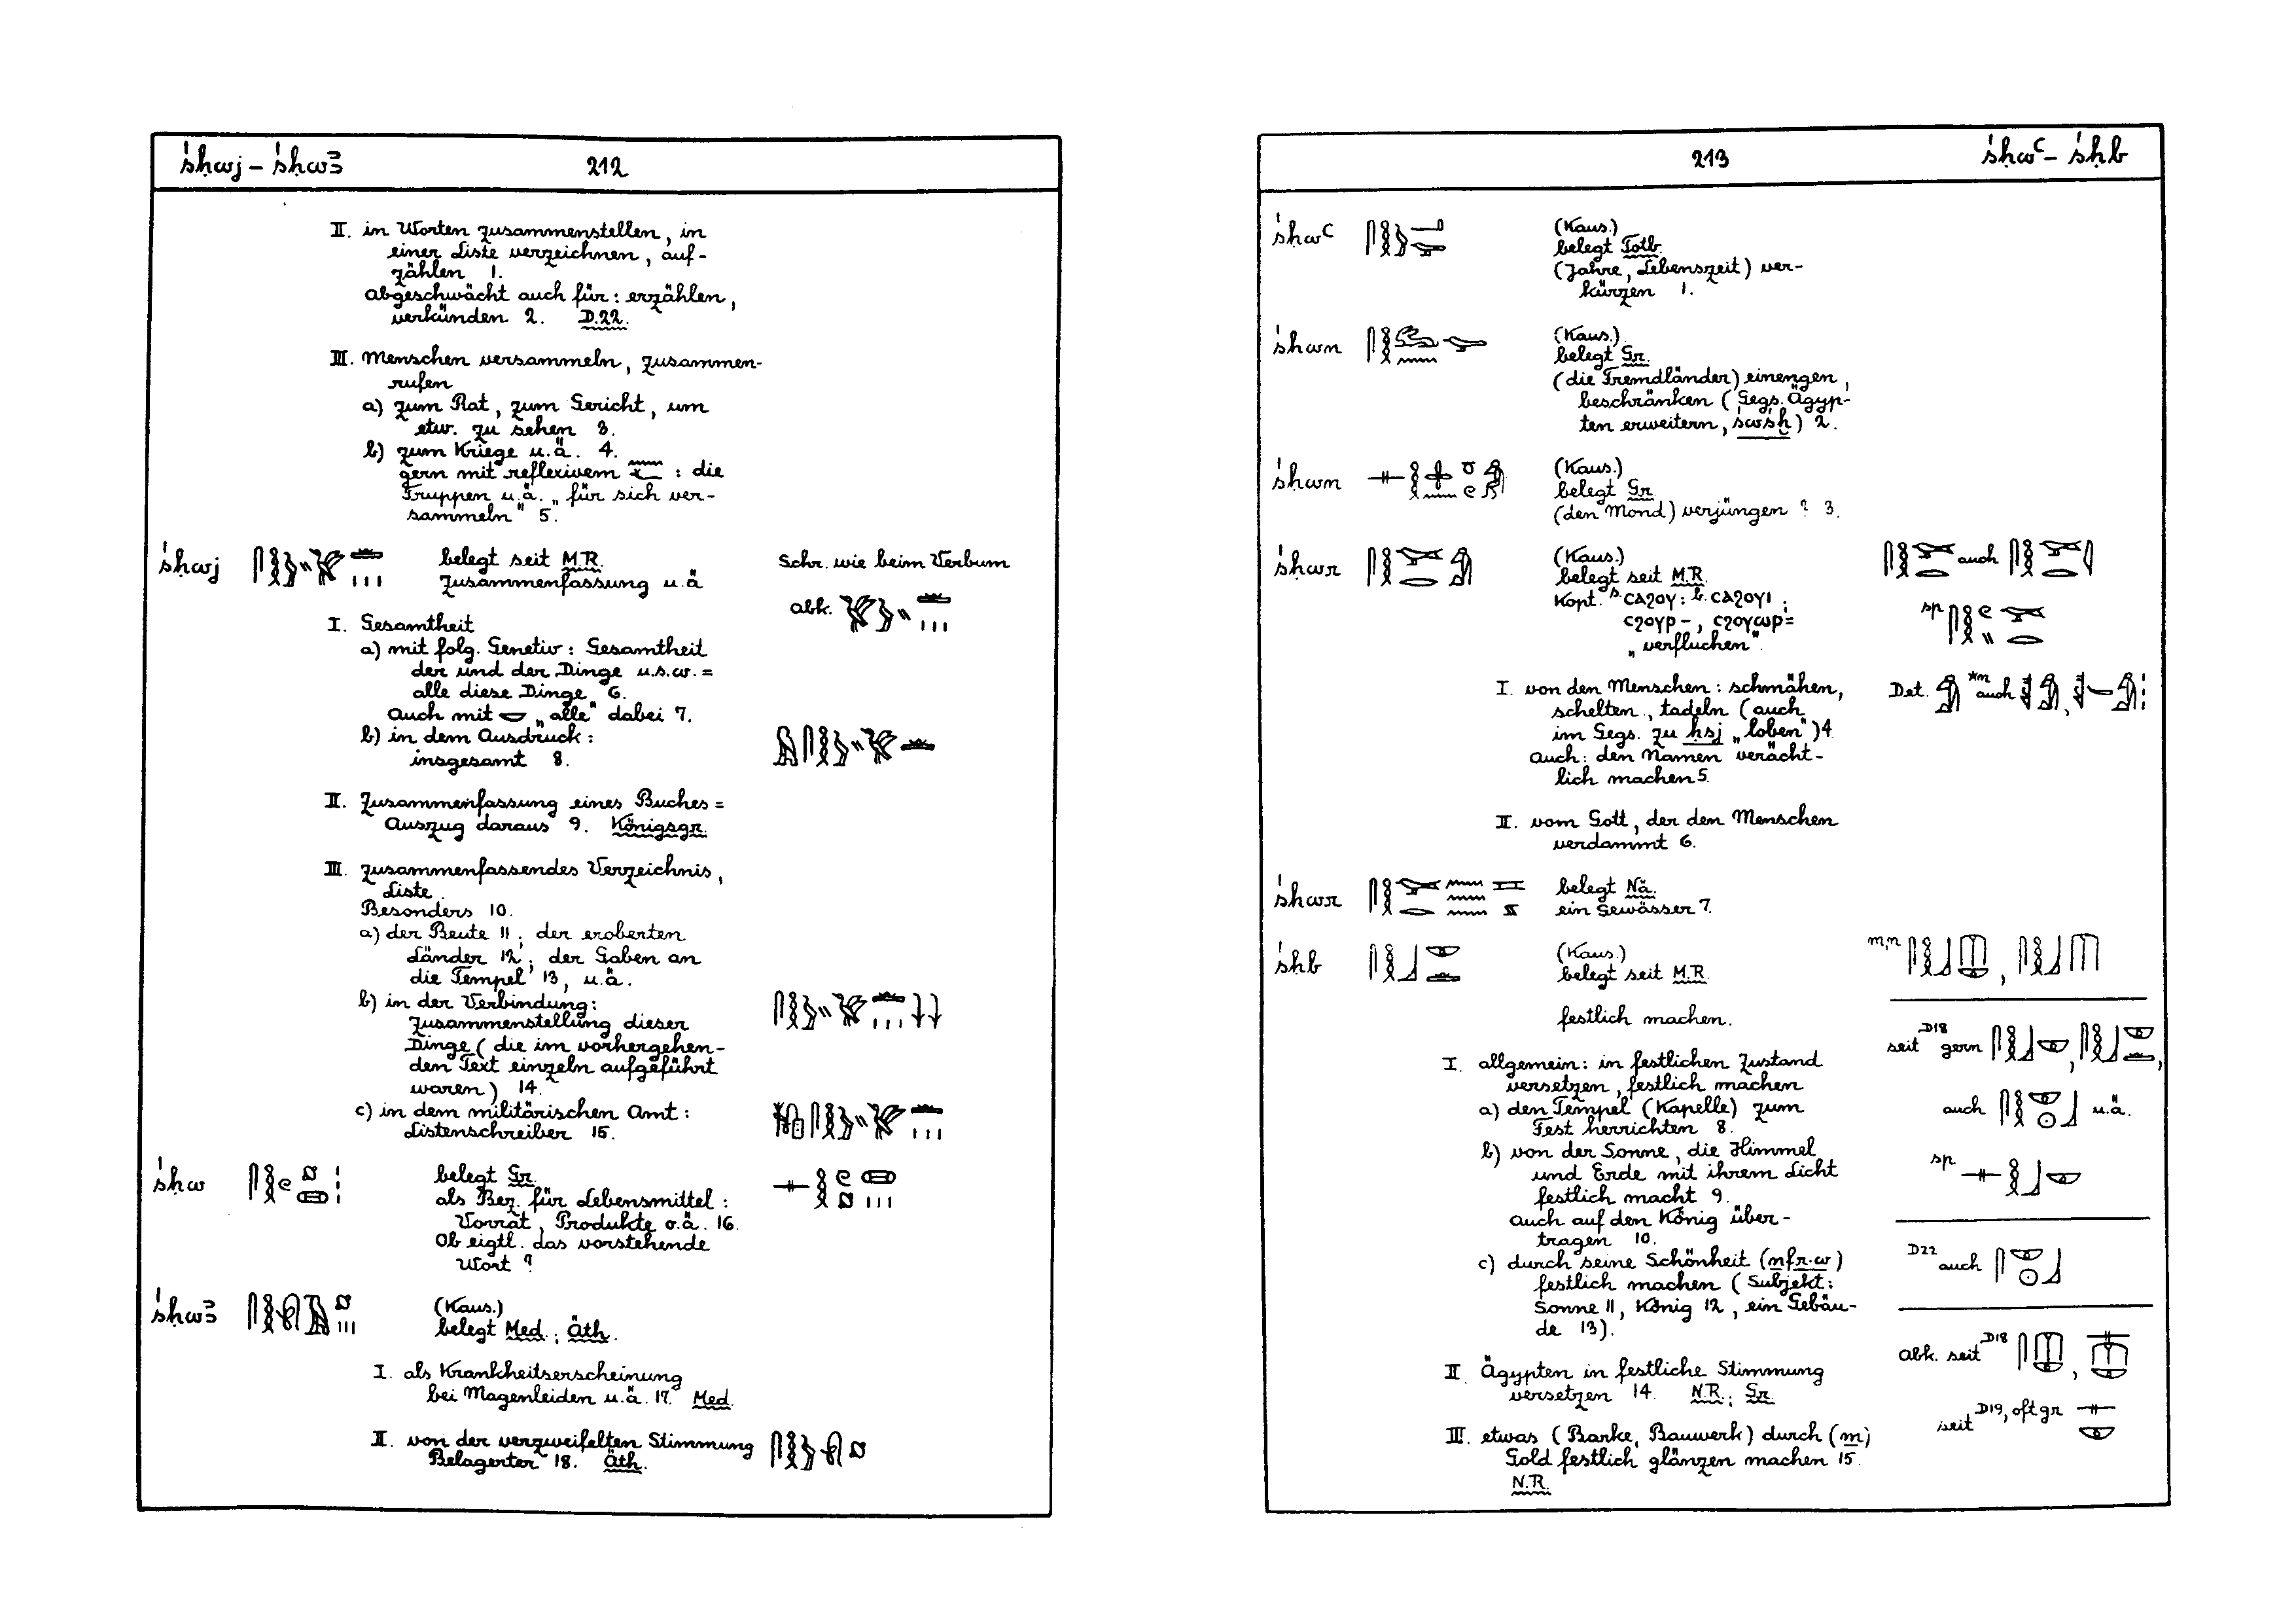 śḥwj – śḥwꜣ 212
II. in Worten zusammenstellen, in
einer Liste verzeichnen, auf-
zählen 1.
abgeschwächt auch für: erzählen,
verkünden 2. D.22.
III. Menschen versammeln, zusammen-
rufen
a) zum Rat, zum Gericht, um
etw. zu sehen 3.
b) zum Kriege u.ä. 4.
gern mit reflexivem : die
Truppen u.ä. „für sich ver-
sammeln" 5.
śḥwj belegt seit M.R. Schr. wie beim Verbum
Zusammenfassung u.ä
abk.
I. Gesamtheit
a) mit folg. Genetiv: Gesamtheit
der und der Dinge u.s.w. =
alle diese Dinge 6.
Auch mit „alle" dabei 7.
b) in dem Ausdruck:
insgesamt 8.
II. Zusammenfassung eines Buches =
Auszug daraus 9. Königsgr.
III. zusammenfassendes Verzeichnis,
Liste.
Besonders 10.
a) der Beute 11; der eroberten
Länder 12; der Gaben an
die Tempel 13, u.ä.
b) in der Verbindung:
Zusammenstellung dieser
Dinge (die im vorhergehen-
den Text einzeln aufgeführt
waren) 14.
c) in dem militärischen Amt:
Listenschreiber 15.
śḥw belegt Gr.
als Bez. für Lebensmittel:
Vorrat, Produkte o.ä. 16.
Ob eigtl. das vorstehende
Wort?
śḥwꜣ (Kaus.)
belegt Med.; Äth.
I. als Krankheitserscheinung
bei Magenleiden u.ä. 17. Med.
II. von der verzweifelten Stimmung
Belagerter 18. Äth.
213 śḥwꜥ – śḥb
śḥwꜥ (Kaus.)
belegt Totb.
(Jahre, Lebenszeit) ver-
kürzen 1.
śḥwn (Kaus.)
belegt Gr.
(die Fremdländer) einengen,
beschränken (Gegs. Ägyp-
ten erweitern, śwśḫ) 2.
śḥwn (Kaus.)
belegt Gr.
(den Mond) verjüngen? 3.
śḥwr (Kaus.) auch
belegt seit M.R.
Kopt. S. ⲥⲁϩⲟⲩ: B. ⲥⲁϩⲟⲩⲓ; sp
ⲥϩⲟⲩⲣ-, ⲥϩⲟⲩⲱⲣ=
„verfluchen".
I. von den Menschen: schmähen, Det. *n auch
schelten, tadeln (auch
im Gegs. zu ḥsj „loben") 4
auch: den Namen verächt-
lich machen 5.
II. vom Gott, der den Menschen
verdammt 6.
śḥwr belegt Nä.
ein Gewässer 7.
śḥb (Kaus.) m,n
belegt seit M.R.
festlich machen.
seit D18 gern
I. allgemein: in festlichen Zustand
versetzen, festlich machen
a) den Tempel (Kapelle) zum auch u.ä.
Fest herrichten 8.
b) von der Sonne, die Himmel sp
und Erde mit ihrem Licht
festlich macht 9.
auch auf den König über-
tragen 10.
c) durch seine Schönheit (nfr.w) D22 auch
festlich machen (Subjekt:
Sonne 11, König 12, ein Gebäu-
de 13).
II. Ägypten in festliche Stimmung abk. seit D18
versetzen 14. N.R.; Gr.
seit D19, oft gr
III. etwas (Barke, Bauwerk) durch (m)
Gold festlich glänzen machen 15.
N.R.